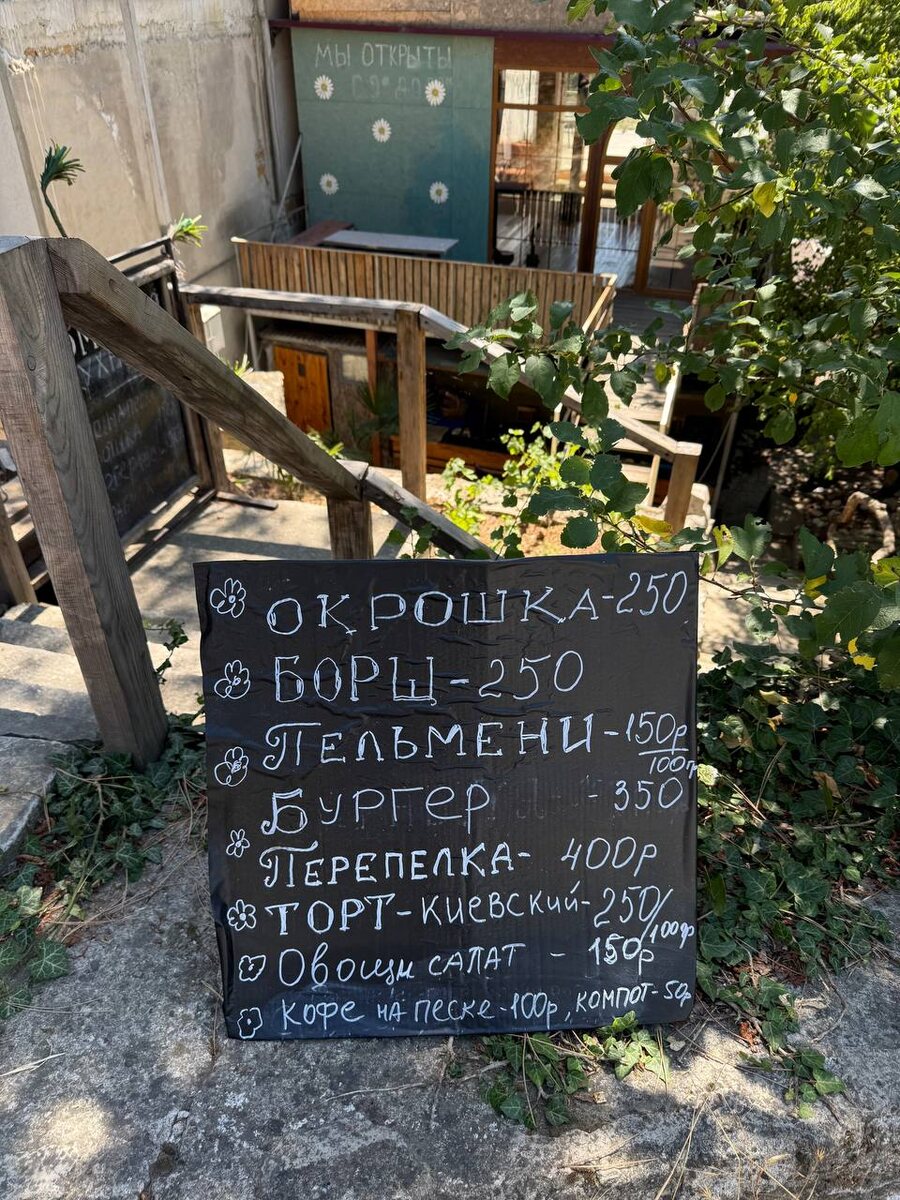 МЫ ОТКРЫТЫ
ОКРОШКА-250
БОРЩ-250
ПЕЛЬМЕНИ-150р
100гр
БУРГЕР -350
ПЕРЕПЕЛКА- 400р
ТОРТ-КИЕВСКИЙ-250/100гр
ОВОЩИ САЛАТ - 150р
КОФЕ НА ПЕСКЕ-100р, КОМПОТ-50р